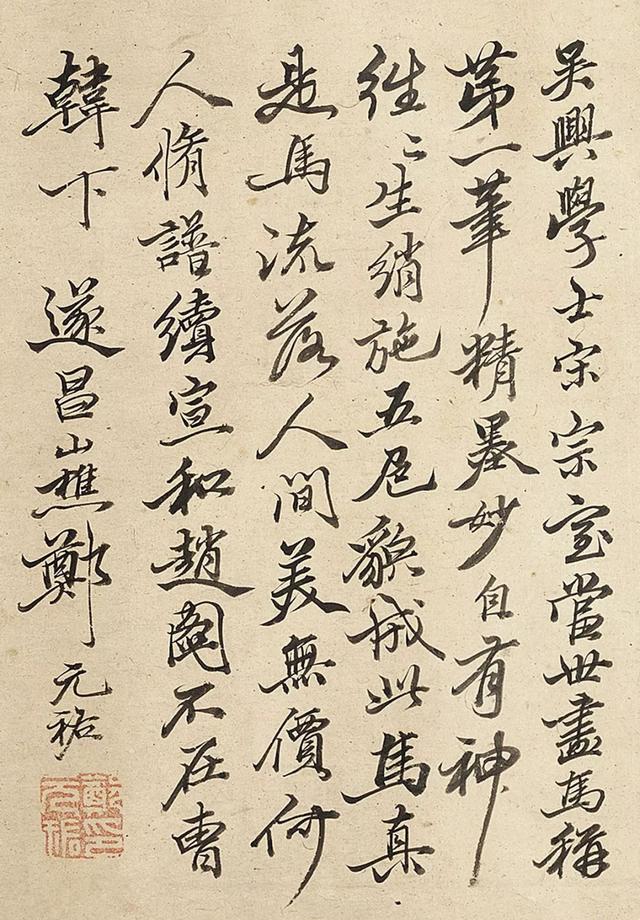 吳興學士宋宗室當世畫馬稱
第一筆精墨妙自有神
往々生綃施五色貌成此馬真
是馬流落人間美無價何
人脩譜續宣和趙圖不在曹
韓下 遂昌山樵鄭
元祐
鄭元祐印